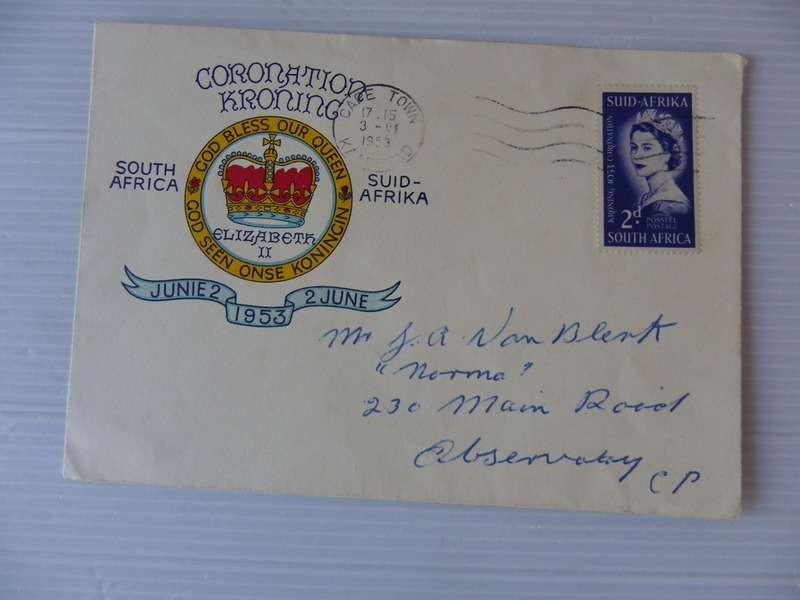 CORONATION
KRONING
CAPE TOWN
17.15
3 - VI
1953
GOD BLESS OUR QUEEN
GOD SEEN ONSE KONINGIN
SOUTH
AFRICA
SUID-
AFRIKA
ELIZABETH
II
JUNIE 2
1953
2 JUNE
SUID-AFRIKA
KRONING 1953 CORONATION
2d.
POSSEËL
POSTAGE
SOUTH AFRICA
Mr J. A Van Blerk
"Norma"
230 Main Road
Observatory
CP